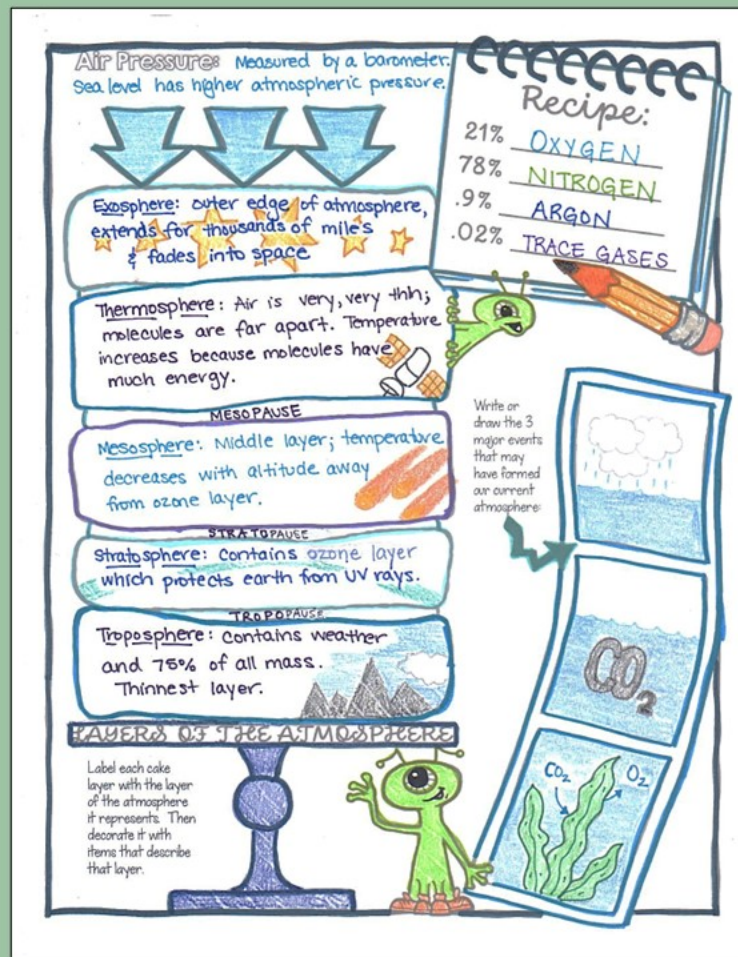 Air Pressure: Measured by a barometer.
Sea level has higher atmospheric pressure.
Recipe:
21% OXYGEN
78% NITROGEN
.9% ARGON
.02% TRACE GASES
Exosphere: outer edge of atmosphere,
extends for thousands of miles
& fades into space
Thermosphere: Air is very, very thin;
molecules are far apart. Temperature
increases because molecules have
much energy.
MESOPAUSE
Mesosphere: Middle layer; temperature
decreases with altitude away
from ozone layer.
STRATOPAUSE
Stratosphere: Contains ozone layer
which protects earth from UV rays.
TROPOPAUSE
Troposphere: Contains weather
and 75% of all mass.
Thinnest layer.
LAYERS OF THE ATMOSPHERE
Label each cake
layer with the layer
of the atmosphere
it represents. Then
decorate it with
items that describe
that layer.
Write or
draw the 3
major events
that may
have formed
our current
atmosphere:
CO2
CO2 O2